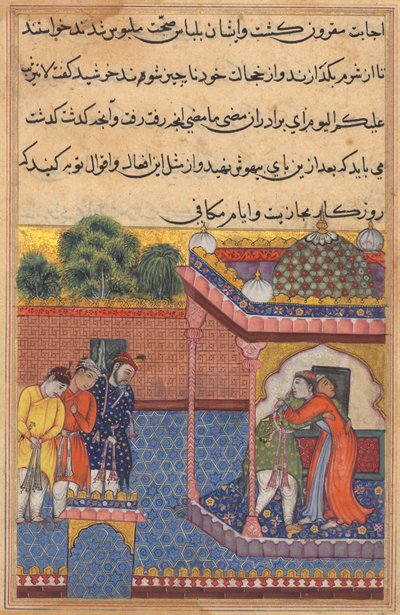 اجابت مقرون کشت و ایشان بلباس صحّت ملبوس شدند خواستند
تا از شرم بکدازند و از خجالت خود ناچیز شوند خرشید کفت لا تثریب
علیکم الیوم ای برادران مضی ما مضی انجه رفت رفت و آنجه کذشت کذشت
می باید که بعد ازین بای بیهوش نهید و از مثل این افعال و اقوال توبه کنید که
روزکار مجازیست و ایام مکافی